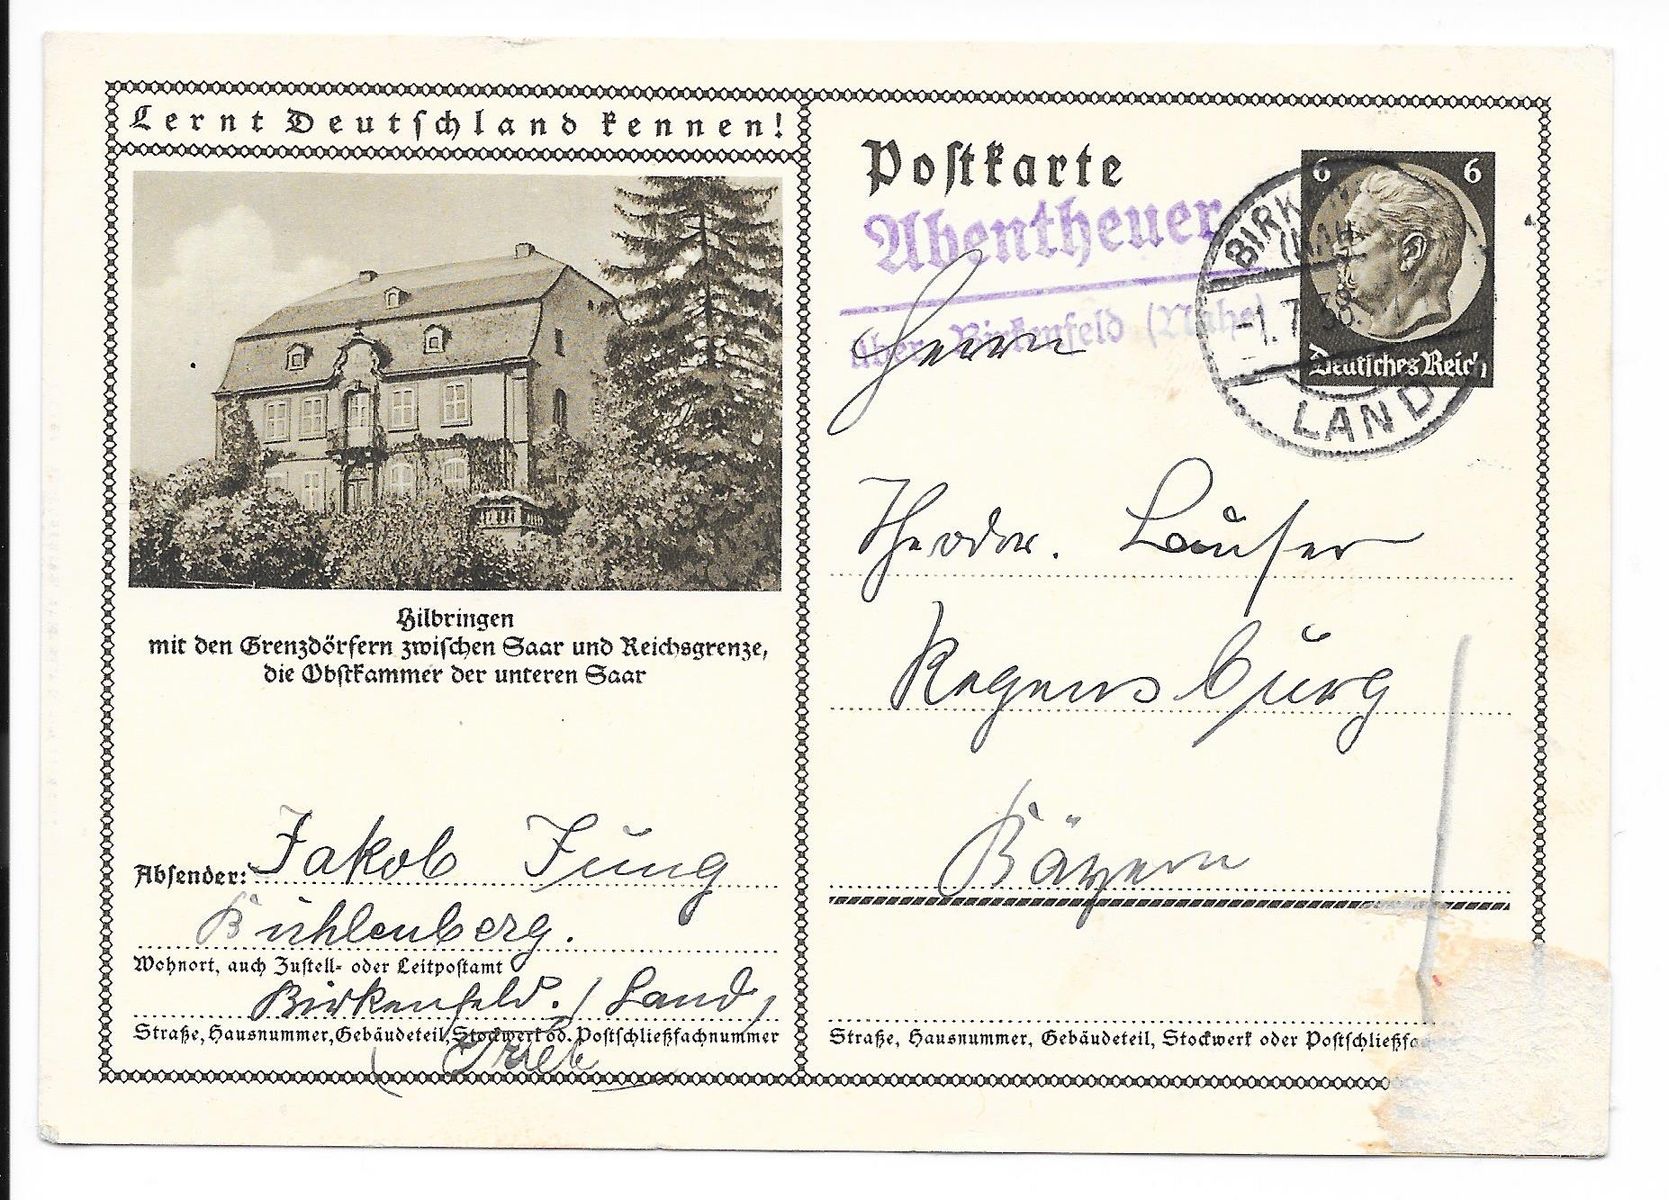 Lernt Deutschland kennen!
Hilbringen
mit den Grenzdörfern zwischen Saar und Reichsgrenze,
die Obstkammer der unteren Saar
Absender: Jakob Jung
Bühlenberg.
Wohnort, auch Zustell- oder Leitpostamt
Birkenfeld. / Land,
Straße, Hausnummer, Gebäudeteil, Stockwerk od. Postschließfachnummer
Postkarte
Abentheuer
über Birkenfeld (Nahe)
6 6
Deutsches Reich
LAND
Herrn
Theodor. Laufer
Regensburg
Bayern
Straße, Hausnummer, Gebäudeteil, Stockwerk oder